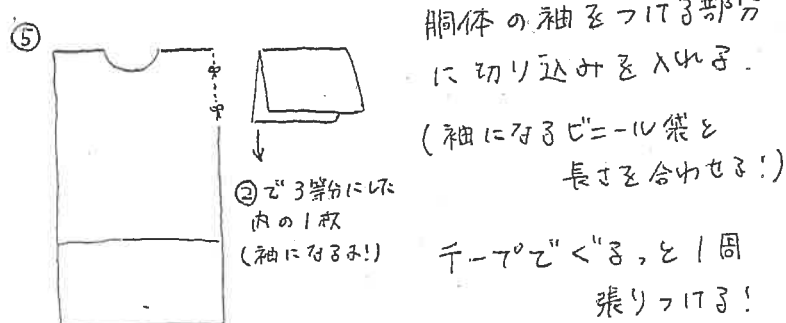 ⑤
②で3等分にした
内の1枚
(袖になるよ!)
胴体の袖をつける部分
に切り込みを入れる.
(袖になるビニール袋と
長さを合わせる!)
テープでぐるっと1周
張りつける!